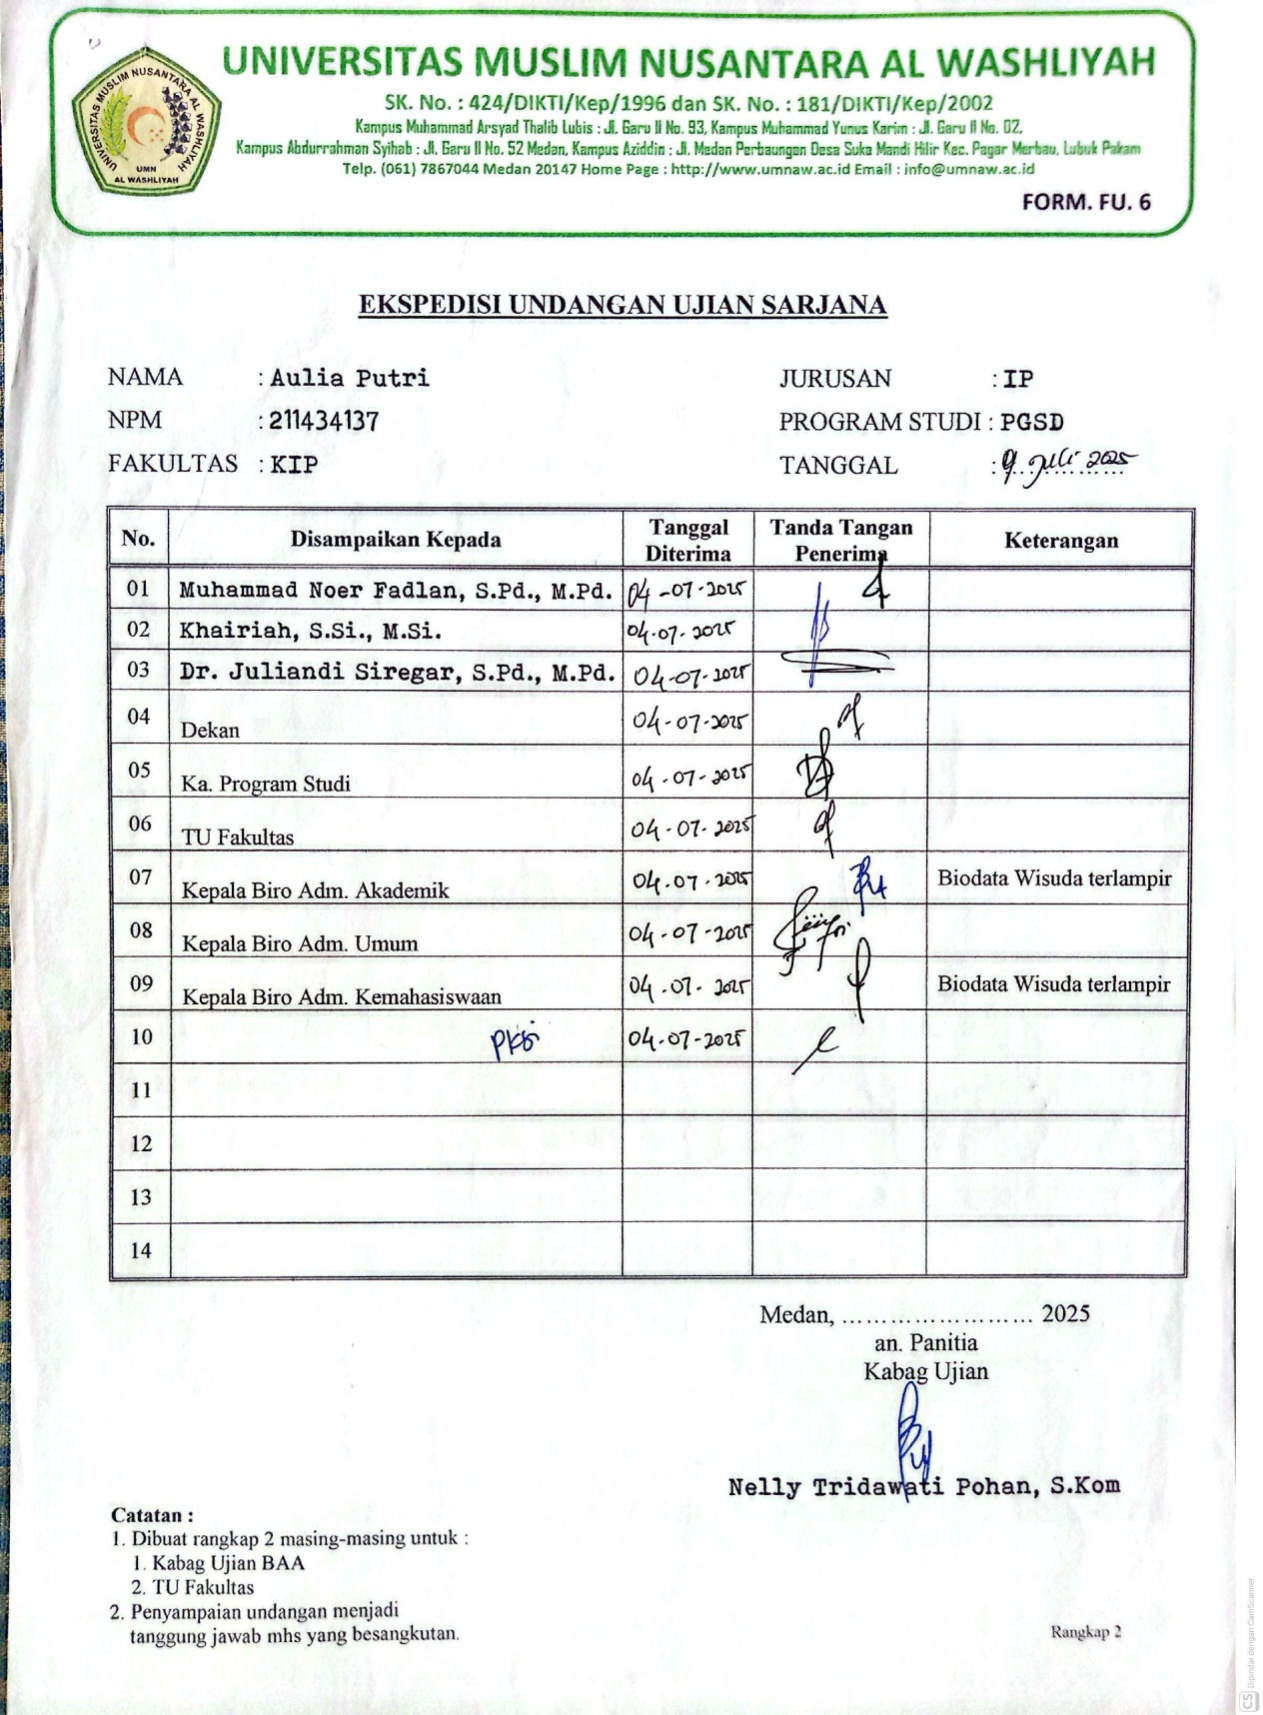 UNIVERSITAS MUSLIM NUSANTARA AL WASHLIYAH
UNIVERSITAS MUSLIM NUSANTARA AL WASHLIYAH
UMN
AL WASHLIYAH
SK. No. : 424/DIKTI/Kep/1996 dan SK. No. : 181/DIKTI/Kep/2002
Kampus Muhammad Arsyad Thalib Lubis : Jl. Garu II No. 93, Kampus Muhammad Yunus Karim : Jl. Garu II No. 02,
Kampus Abdurrahman Syihab : Jl. Garu II No. 52 Medan, Kampus Aziddin : Jl. Medan Perbaungan Desa Suka Mandi Hilir Kec. Pagar Merbau, Lubuk Pakam
Telp. (061) 7867044 Medan 20147 Home Page : http://www.umnaw.ac.id Email : info@umnaw.ac.id
FORM. FU. 6
EKSPEDISI UNDANGAN UJIAN SARJANA
NAMA : Aulia Putri JURUSAN : IP
NPM : 211434137 PROGRAM STUDI : PGSD
FAKULTAS : KIP TANGGAL : 9 Juli 2025
No. Disampaikan Kepada Tanggal Diterima Tanda Tangan Penerima Keterangan
01 Muhammad Noer Fadlan, S.Pd., M.Pd. 04-07-2025
02 Khairiah, S.Si., M.Si. 04-07-2025
03 Dr. Juliandi Siregar, S.Pd., M.Pd. 04-07-2025
04 Dekan 04-07-2025
05 Ka. Program Studi 04-07-2025
06 TU Fakultas 04-07-2025
07 Kepala Biro Adm. Akademik 04-07-2025 Biodata Wisuda terlampir
08 Kepala Biro Adm. Umum 04-07-2025
09 Kepala Biro Adm. Kemahasiswaan 04-07-2025 Biodata Wisuda terlampir
10 04-07-2025
11
12
13
14
Medan, ........................ 2025
an. Panitia
Kabag Ujian
Nelly Tridawati Pohan, S.Kom
Catatan :
1. Dibuat rangkap 2 masing-masing untuk :
1. Kabag Ujian BAA
2. TU Fakultas
2. Penyampaian undangan menjadi
tanggung jawab mhs yang besangkutan.
Rangkap 2
CS Dipindai dengan CamScanner